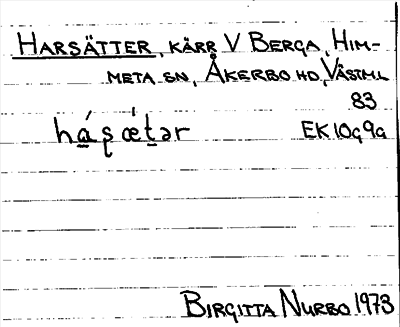 HARSÄTTER, KÄRR V BERGA, HIM-
META SN, ÅKERBO HD, VÄSTML
83
há̱ʂǽt̠ər EK 10g9a
BIRGITTA NURBO 1973